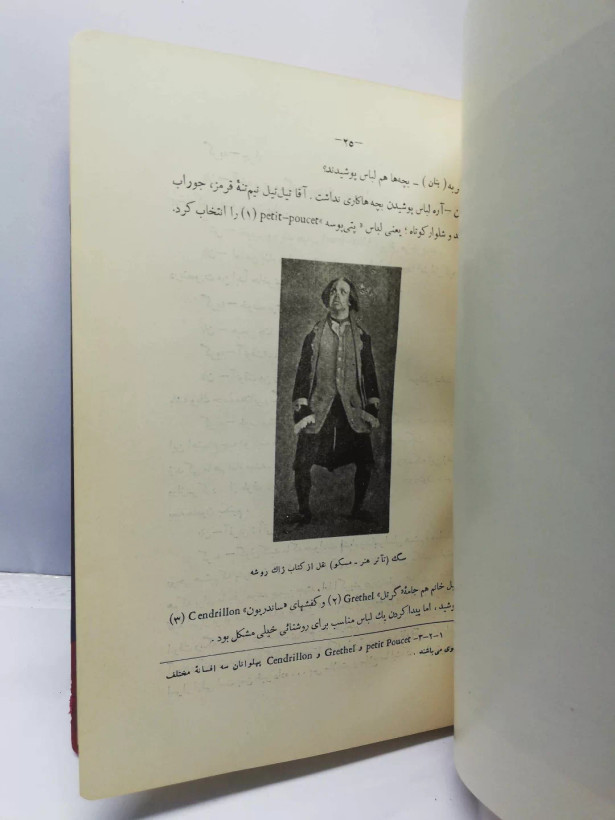 -۲۵-
ربه ( بنان ) ـ بچه‌ها هم لباس پوشیدند؟
ـ آره لباس پوشیدن بچه‌ها کاری نداشت . آقا تیل‌تیل نیم‌تنهٔ قرمز، جوراب
و شلوار کوتاه ؛ یعنی لباس « پتی‌پوسه » petit-poucet (۱) را انتخاب کرد.
سگ (تآتر هنر ـ مسکو) نقل از کتاب ژاك روشه
خانم هم جامهٔ« گرتل» Grethel (۲) و کفشهای «ساندریون» Cendrillon (۳)
وشید ، اما پیدا کردن یك لباس مناسب برای روشنائی خیلی مشکل بود .
۱-۲-۳- petit Poucet و Grethel و Cendrillon پهلوانان سه افسانهٔ مختلف
می‌باشند ..